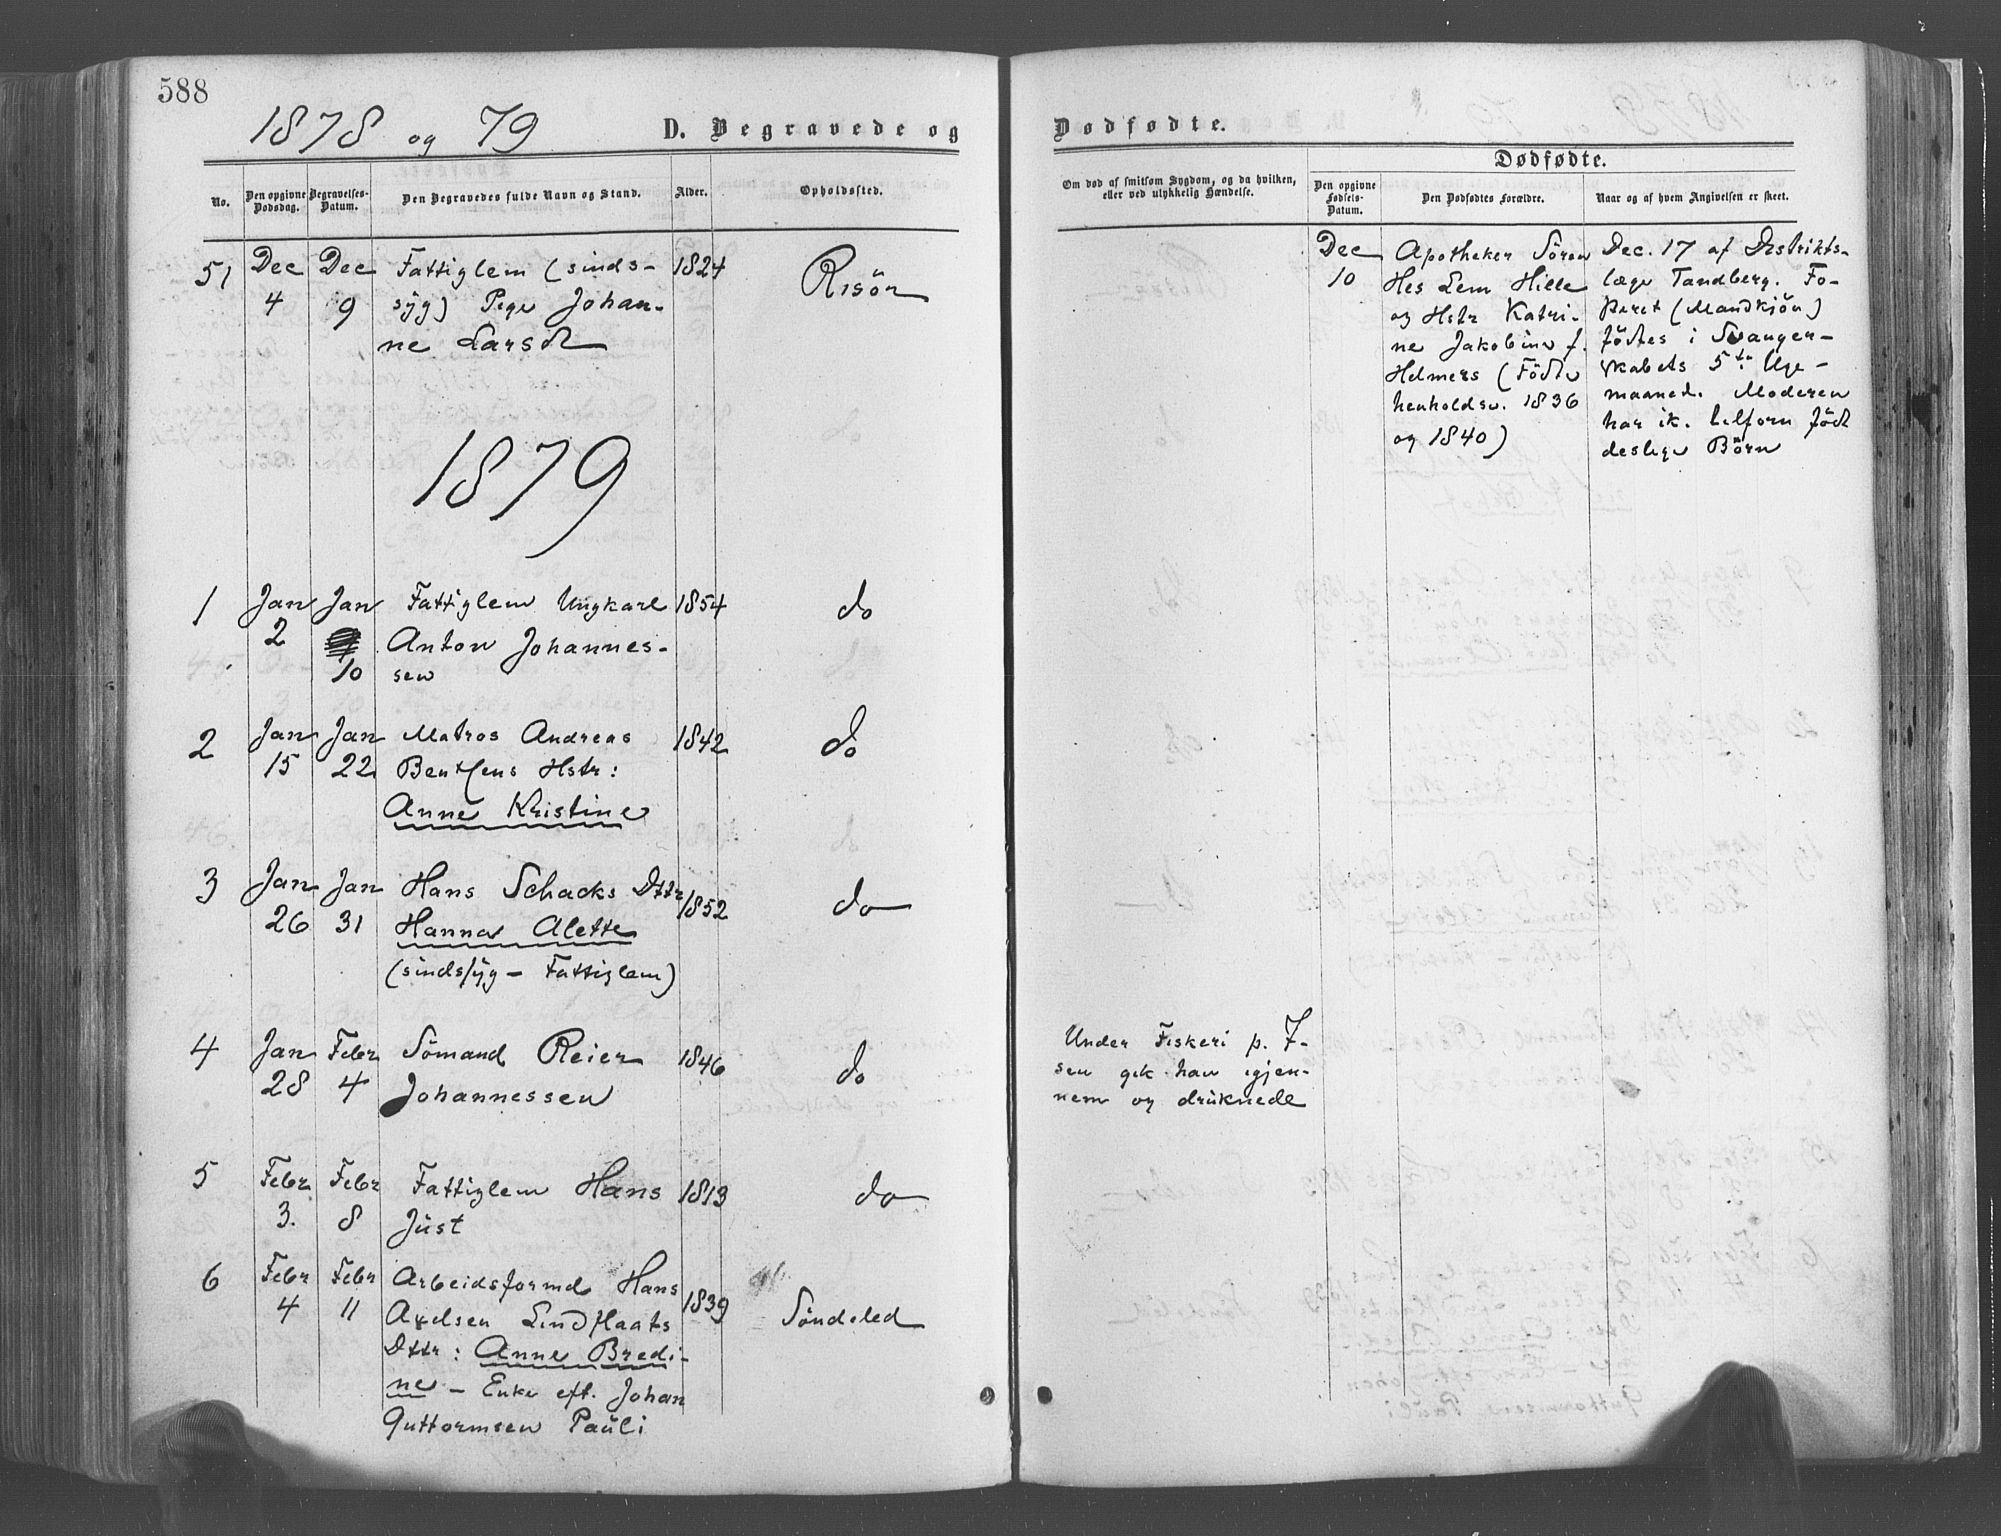 588
1878 og 79
D. Begravede og
No.
Den opgivne Dødsdag.
Begravelses-Datum.
Den Begravedes fulde Navn og Stand.
Alder.
Opholdssted.
51 Dec Dec Fattiglem (sinds- 1824 Risör
4 9 syg) Pige Johan-
ne Larsd
1879
1 Jan Jan Fattiglem Ungkarl 1854 do
2 Anton Johannes-
10 sen
2 Jan Jan Matros Andreas 1842 do
15 22 Bentsens Hstr:
Anne Kristine
3 Jan Jan Hans Schacks Dttr 1852 do
26 31 Hanna Alette
(sindssyg – Fattiglem)
4 Jan Febr Sömand Reier 1846 do
28 4 Johannessen
5 Febr Febr Fattiglem Hans 1813 do
3. 8 Just
6 Febr Febr Arbeidsformd Hans 1839 Söndeled
4 11 Axelsen Lindstaats
Dttr: Anne Bredi-
ne – Enke eft. Johan
Guttormsen Pauli
Dødfødte.
Dødfødte.
Om død af smitsom Sygdom, og da hvilken,
eller ved ulykkelig Hændelse.
Den opgivne
Fødsels-
Datum.
Den Dødfødtes Forældre.
Naar og af hvem Angivelsen er skeet.
Dec Apotheker Sören Dec. 17 af Distrikts-
10 Hes Lem Hille læge Tandberg. Fo-
og Hstr Katri- steret (Mandkjön)
ne Jakobine f. födtes i Svanger-
Helmers (Födte skabets 5te Uge-
henholdsv. 1836 maaned. Moderen
og 1840) har ik. tilforn födt
deslige Börn
Under Fiskeri p. I-
sen gik han igjen-
nem og druknede